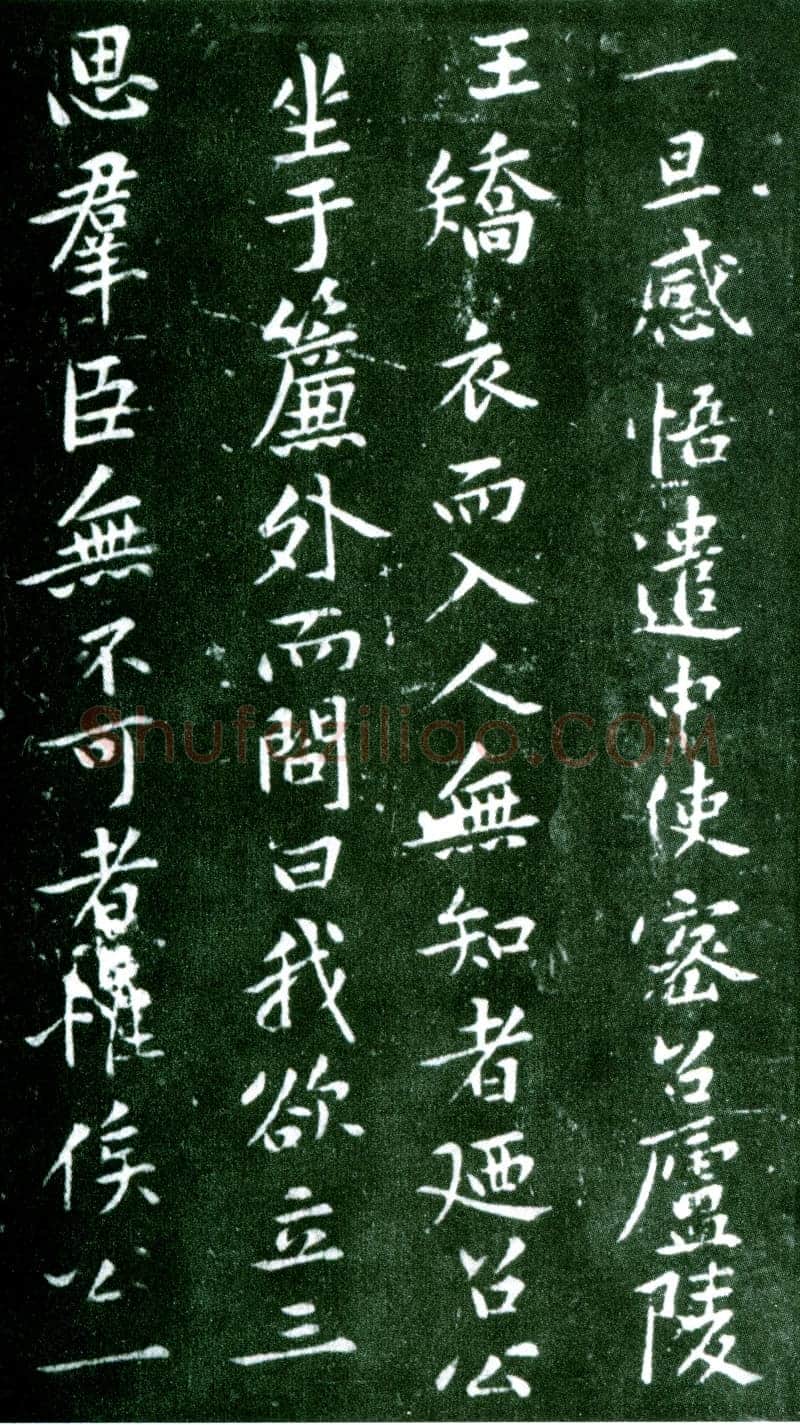 一旦感悟遣中使密召廬陵
王矯衣而入人無知者廼召公
坐于簾外而問曰我欲立三
思羣臣無不可者惟俟公一
Shufaziliao.COM